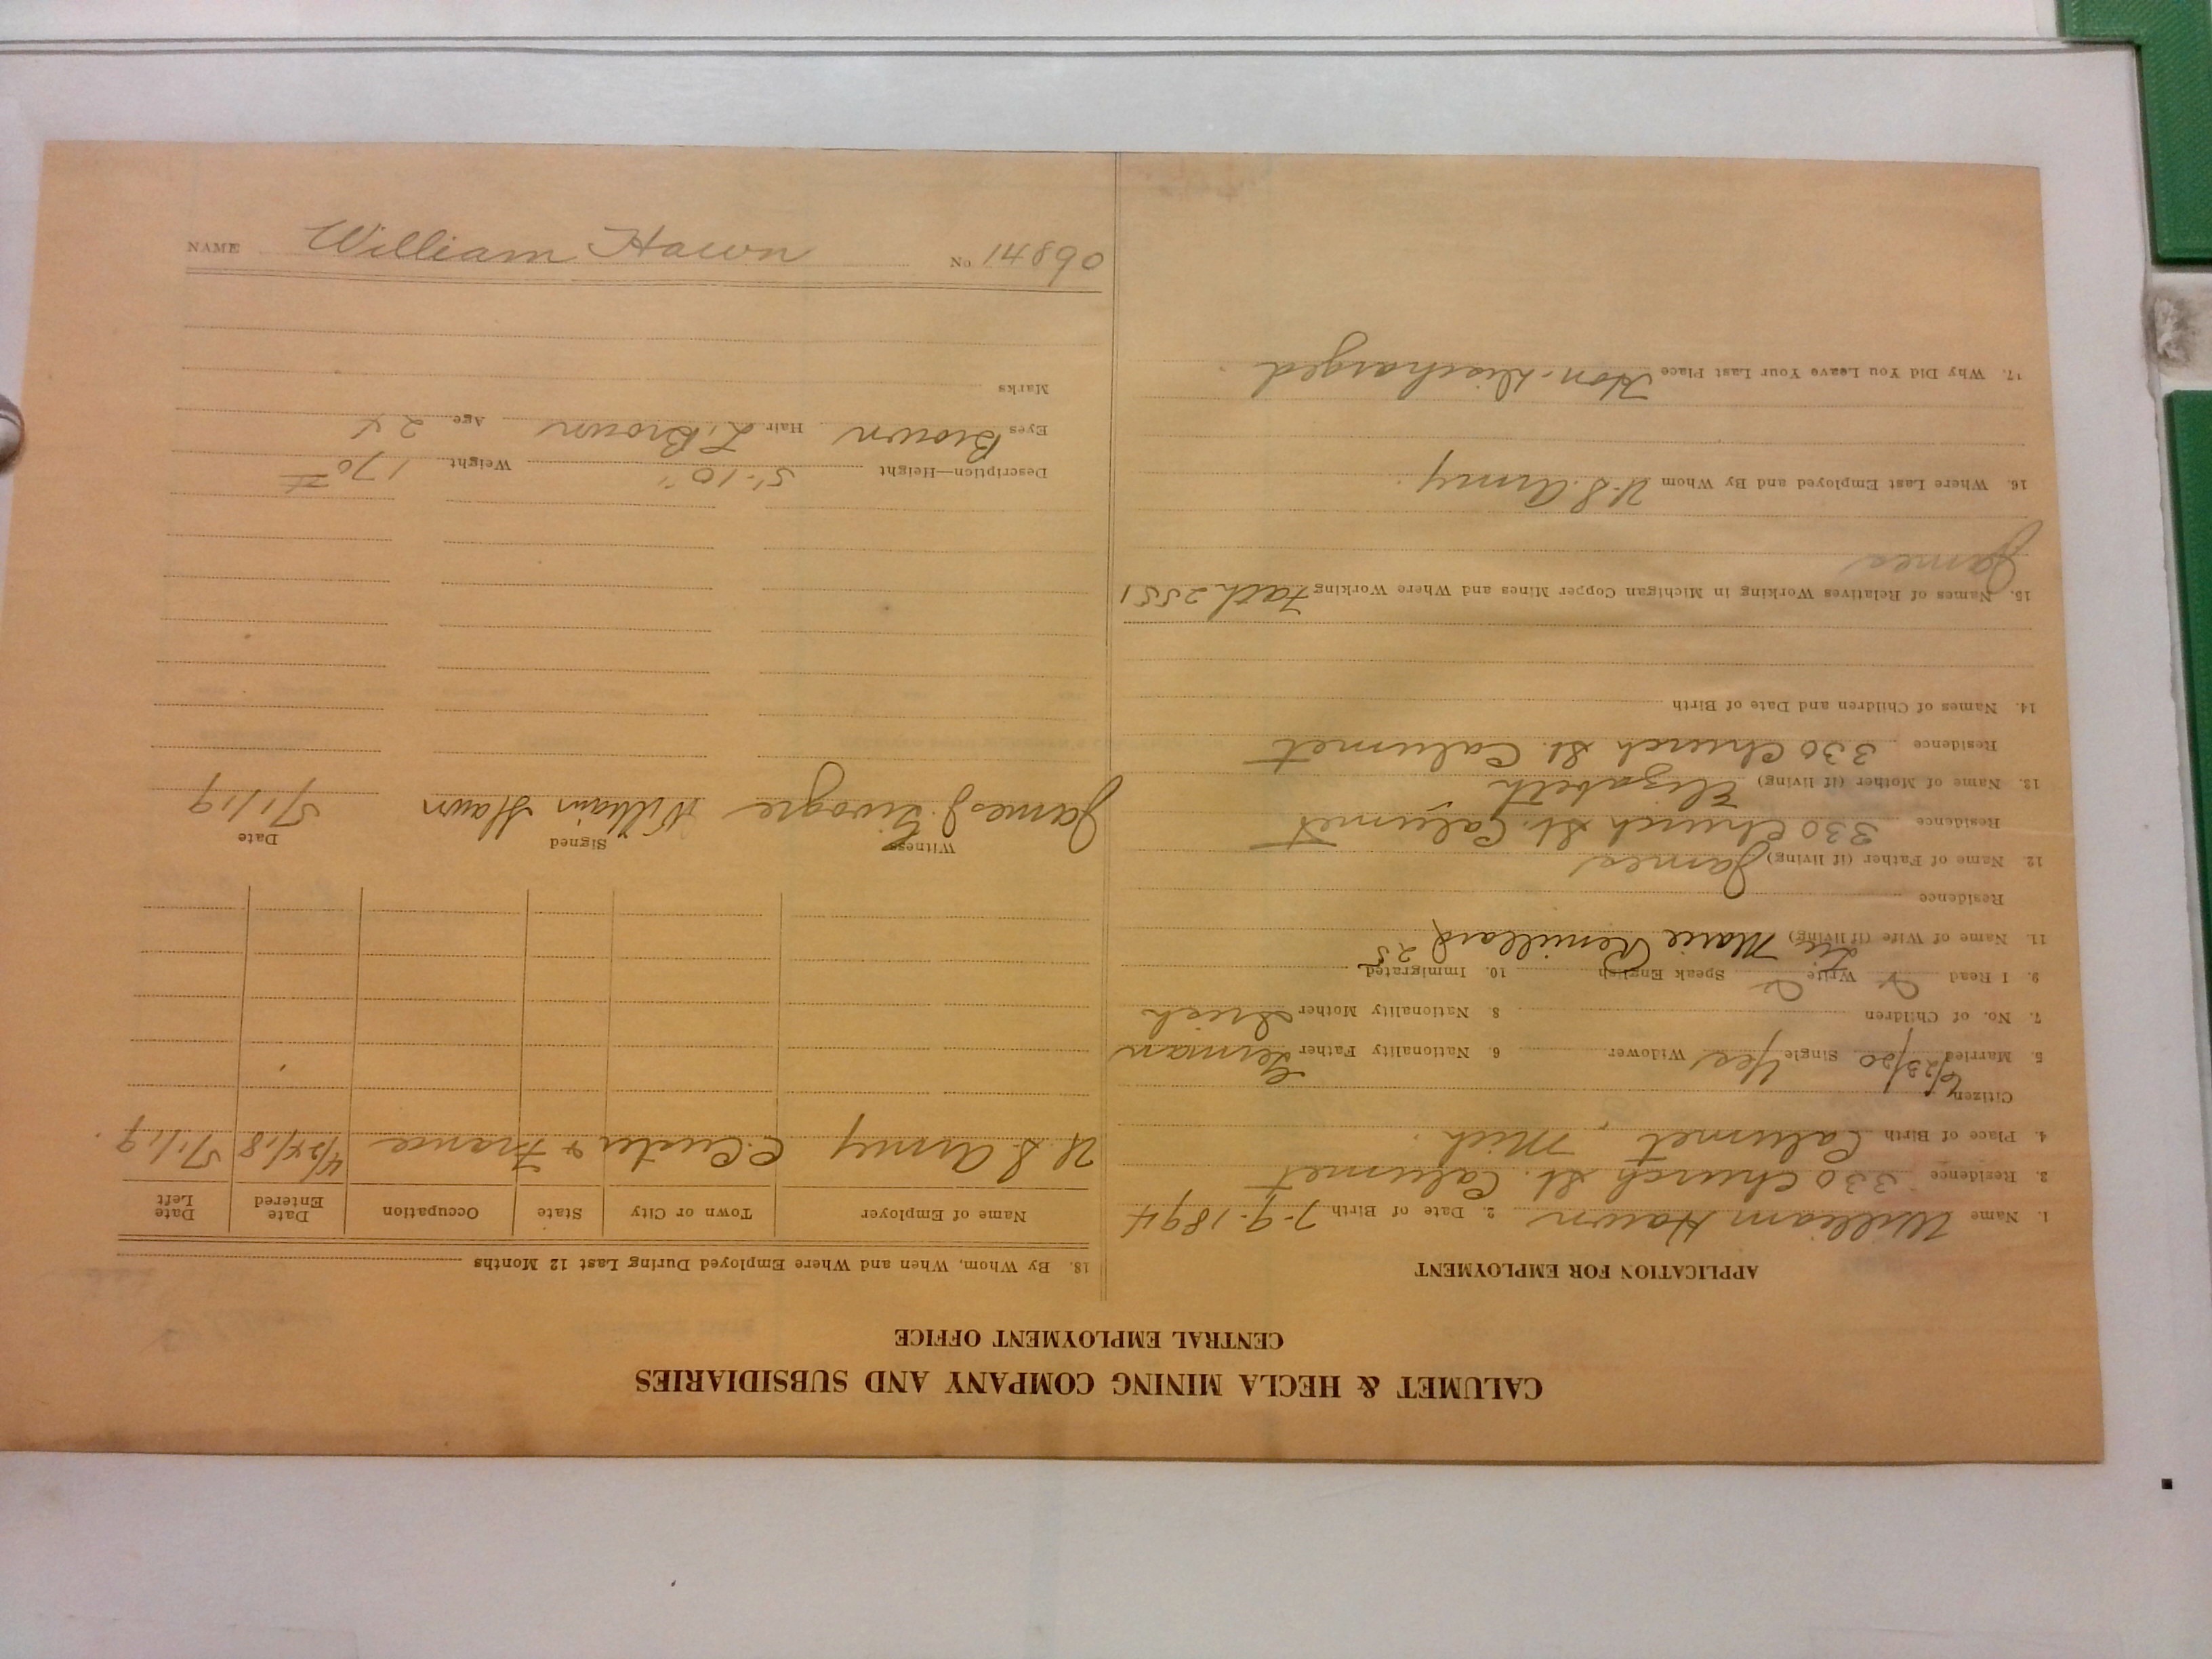 CALUMET & HECLA MINING COMPANY AND SUBSIDIARIES
CENTRAL EMPLOYMENT OFFICE
APPLICATION FOR EMPLOYMENT
1. Name William Hawn 2. Date of Birth 7-9-1894
3. Residence 330 Church St. Calumet
4. Place of Birth Calumet, Mich.
Citizen
5. Married 6/23/20 Single Yes Widower 6. Nationality Father German
7. No. of Children 8. Nationality Mother Irish
9. I Read Write Speak English 10. Immigrated
11. Name of Wife (if living) Marie Remillard 25
Residence
12. Name of Father (if living) James
Residence 330 Church St. Calumet
13. Name of Mother (if living) Elizabeth
Residence 330 Church St. Calumet
14. Names of Children and Date of Birth
15. Names of Relatives Working in Michigan Copper Mines and Where Working Fath 2551
James
16. Where Last Employed and By Whom U.S. Army.
17. Why Did You Leave Your Last Place Hon. Discharged
18. By Whom, When and Where Employed During Last 12 Months
Name of Employer Town or City State Occupation Date Entered Date Left
U.S. Army C. Custer & France 4/24/18 5/1/19.
Witness Signed Date
James J. William Hawn 5/1/19
Description—Height 5'-10" Weight 170 #
Eyes Brown Hair L. Brown Age 24
Marks
NAME William Hawn No 14890